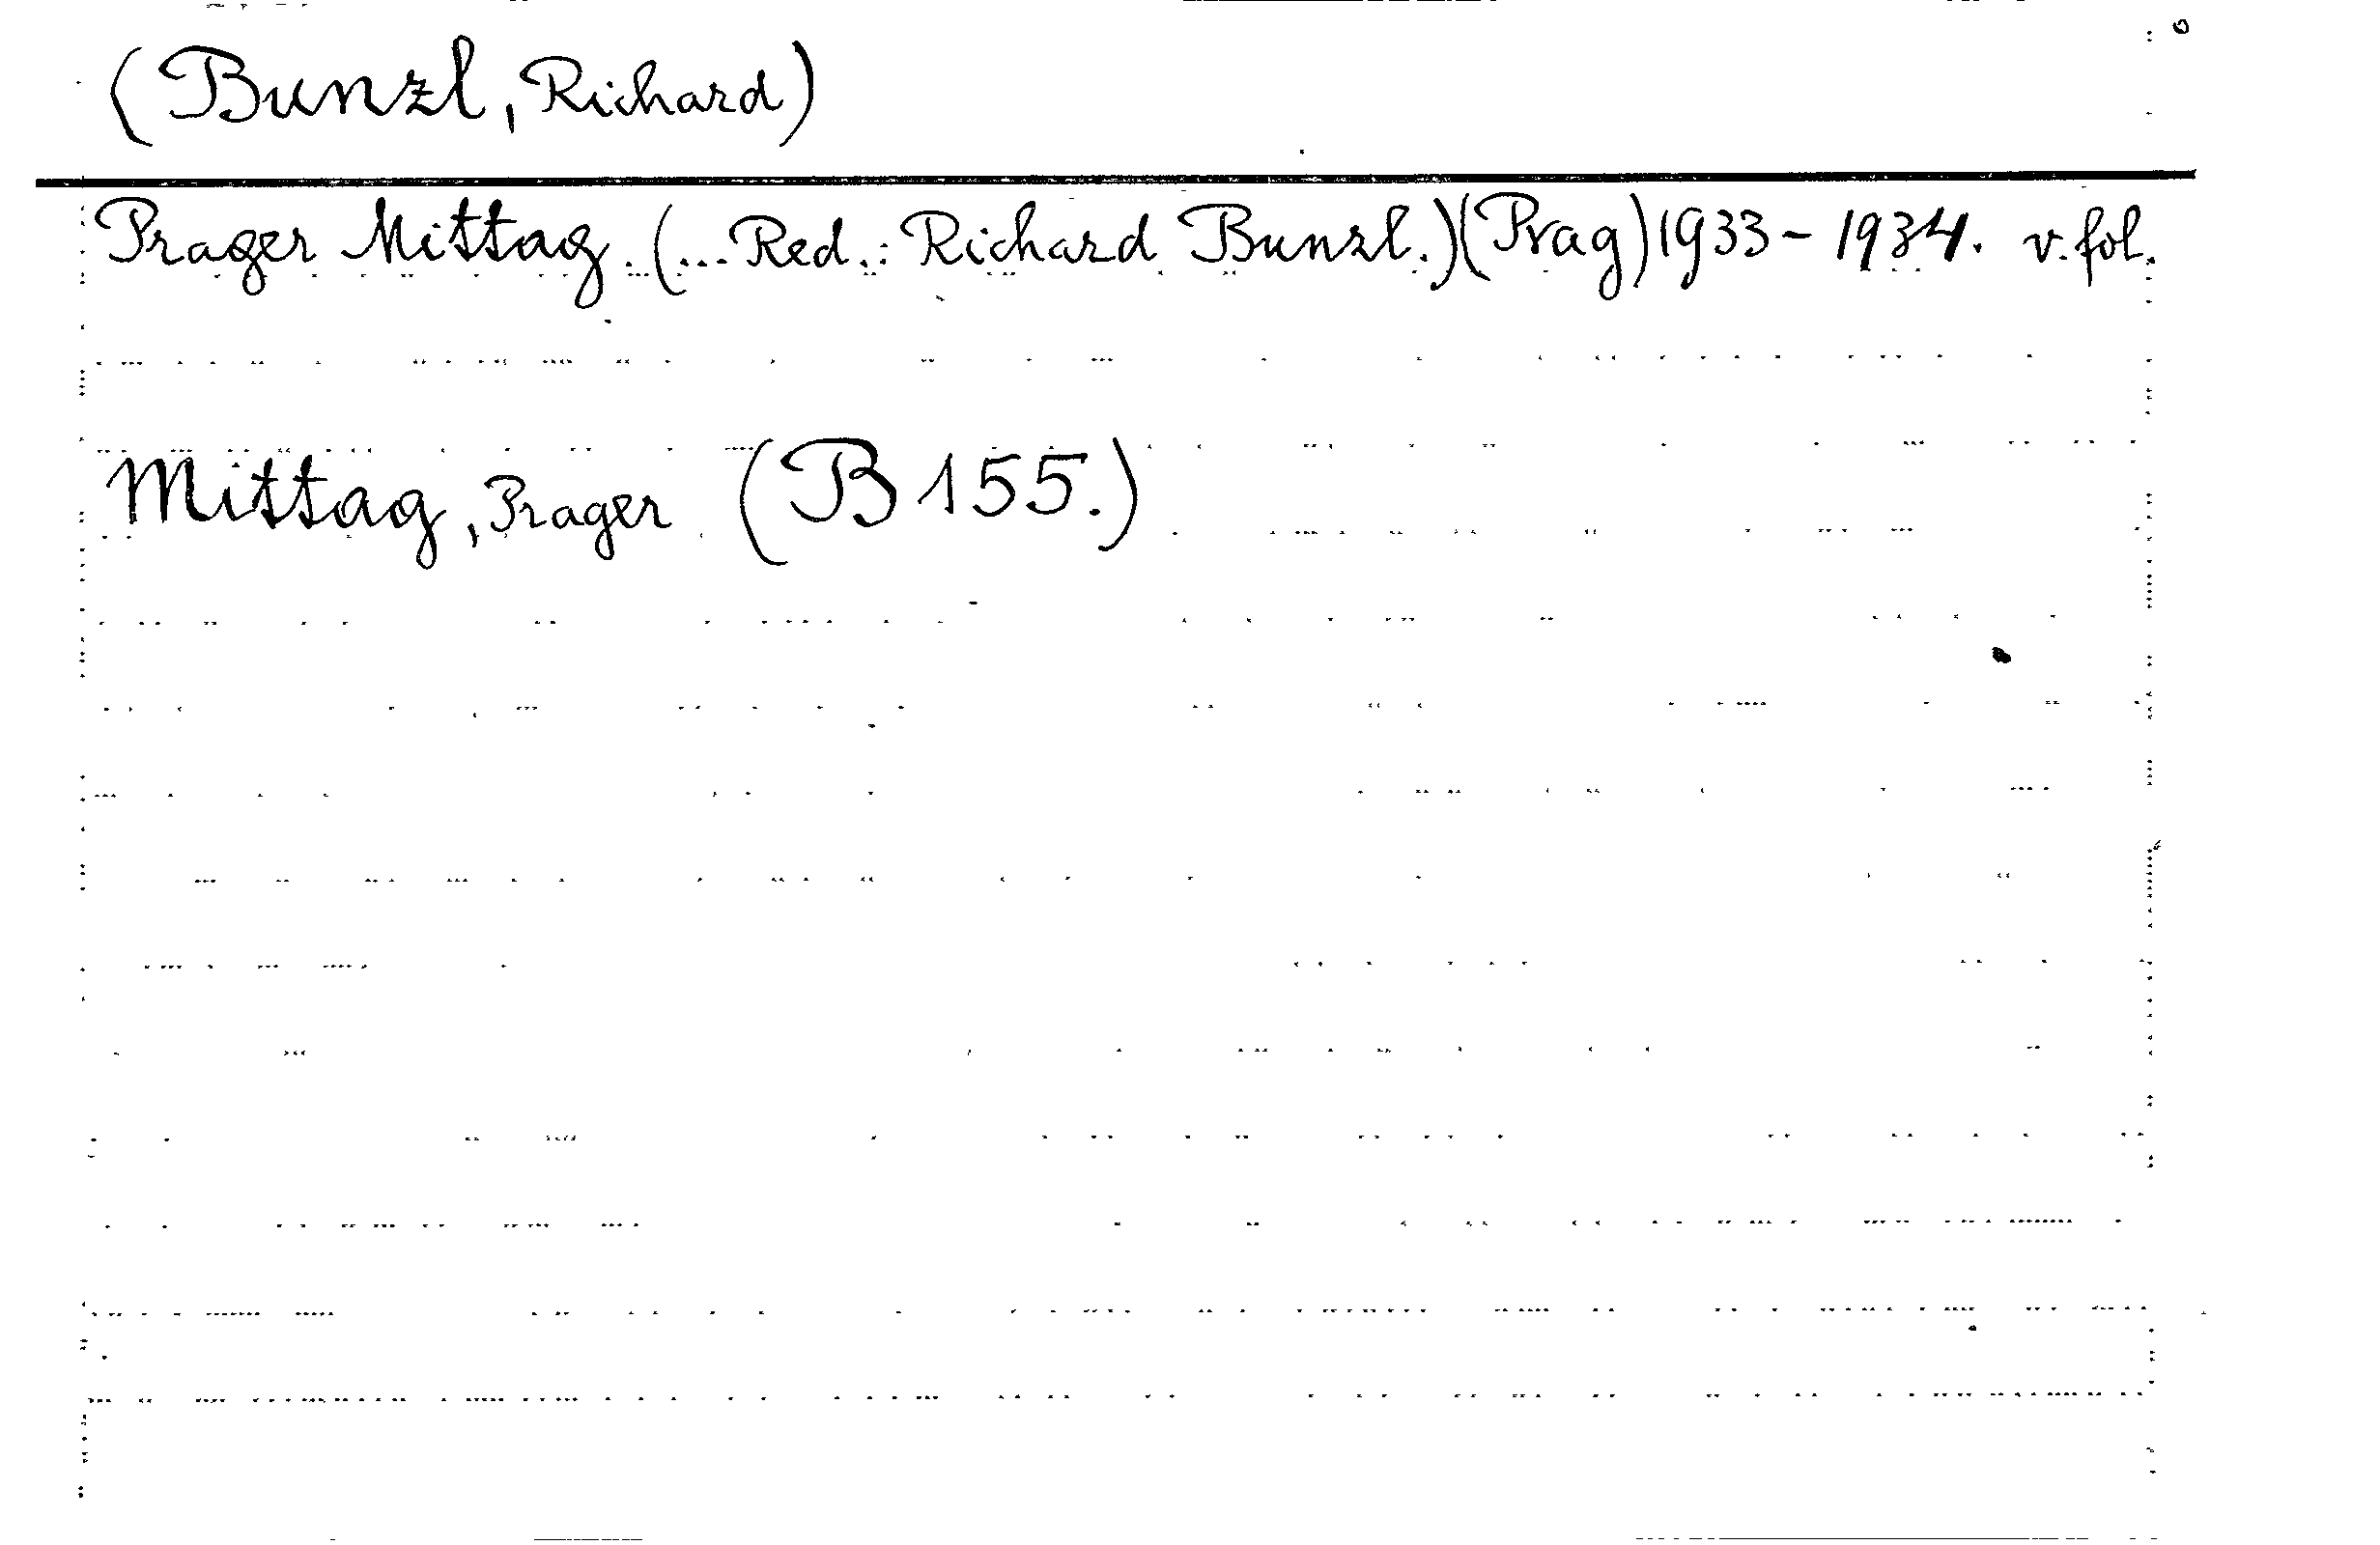 (Bunzl, Richard)
Prager Mittag. (... Red.: Richard Bunzl.) (Prag) 1933-1934. v. fol.
Mittag, Prager (B 155.)